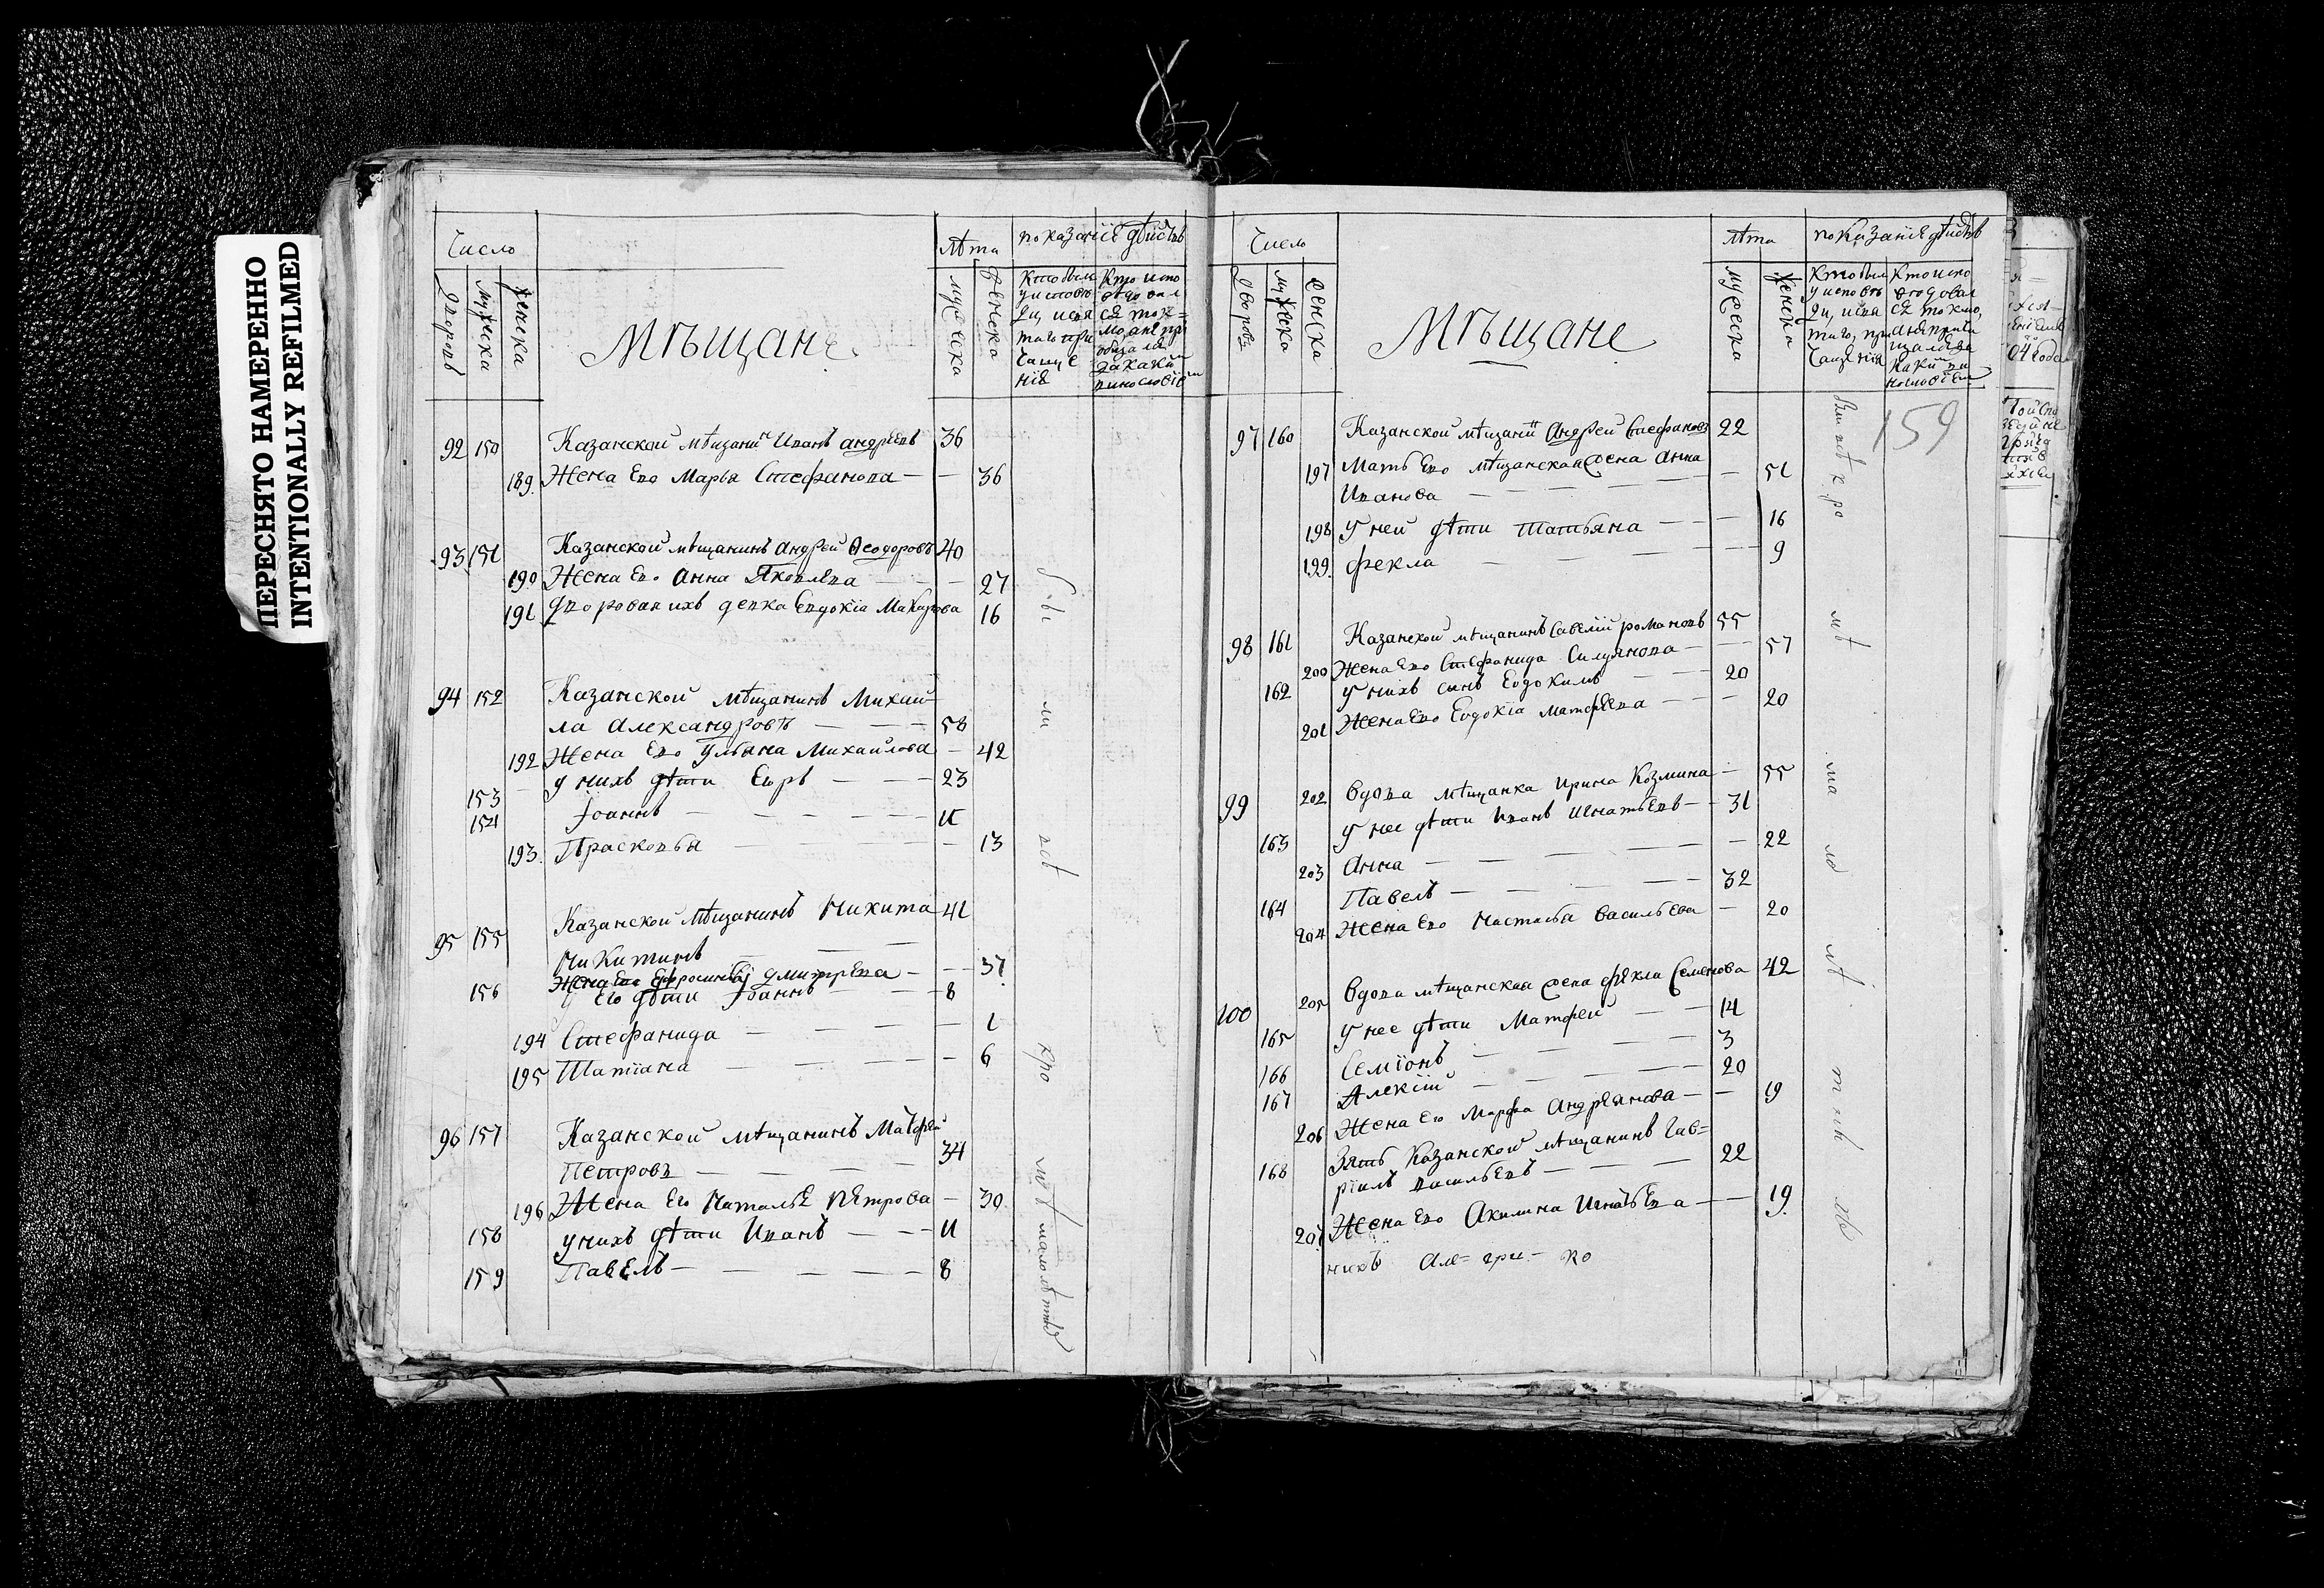 ПЕРЕСНЯТО НАМЕРЕННО
INTENTIONALLY REFILMED
Число
дворовъ
мужеска
женска
Мѣщане
лѣта
мужеска
женска
показаніе дѣйствъ
92 150 Казанской мѣщанинъ Иванъ андрѣевъ 36
189 Жена Ево Марья Стефанова — — 36
93 151 Казанской мѣщанинъ Андрей Ѳеодоровъ 40
190 Жена Ево Анна Яковлева — — 27
191 дворовая ихъ девка Евдокіа Макарова 16
94 152 Казанской мѣщанинъ Михай
ла Александровъ — — 58
192 Жена Ево Ульяна Михайлова — 42
153 у нихъ дѣти Егоръ — — 23
154 Іоаннъ — — — — 11
193 Прасковья — — — 13
95 155 Казанской мѣщанинъ Никита 41
Никитинъ — —
Жена Ево Ефросинья дмитрева — — 37
156 у Его дѣти Іоаннъ — — 8
194 Стефанида — — — — 1
195 Татіана — — — — 6
96 157 Казанской мѣщанинъ Матфей
Петровъ — — — — 34
196 Жена Его Наталье Петрова — 30
158 у нихъ дѣти Иванъ — — 11
159 Павелъ — — — — 8
Число
дворовъ
мужеска
женска
Мѣщане
лѣта
мужеска
женска
показаніе дѣйствъ
159
97 160 Казанской мѣщанинъ Андрей Стефановъ 22
197 Мать Ево мѣщанская жена Анна
Иванова — — — — 51
198 у ней дѣти Татьяна — — — 16
199 фекла — — — — 9
98 161 Казанской мѣщанинъ Савелій романовъ 55
200 Жена Ево Стефанида Силуянова — — 57
162 у нихъ синъ Евдокимъ — — 20
201 Жена Ево Евдокіа матфеева — — 20
99 202 вдова мѣщанка Ирина Козмина — 55
163 у нее дѣти Иванъ Игнатьевъ — — 31
203 Анна — — — — 22
164 Павелъ — — — — 32
204 Жена Ево Настасья васильева — 20
100 205 вдова мѣщанская жена фекла Семенова 42
165 у нее дѣти Матфей — — 14
166 Семіонъ — — — — 3
167 Алексій — — — — 20
206 Жена Его Марфа Андреянова — — 19
168 Зять Казанской мѣщанинъ Гав=
ріилъ васильевъ — — — 22
207 Жена Ево Акилина Игнатьева — — 19